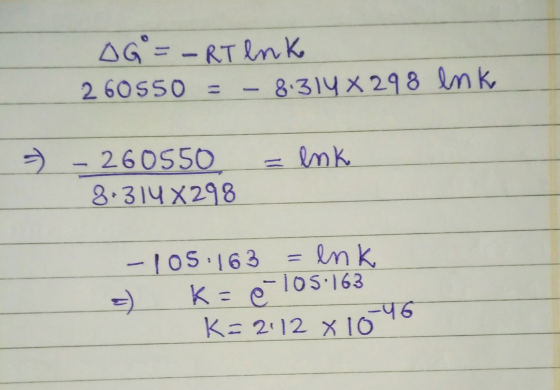 ΔG° = -RT lnK
260550 = - 8.314 X 298 lnK
⇒ - 260550 / 8.314 X 298 = lnK
-105.163 = lnK
⇒ K = e^-105.163
K = 2.12 X 10^-46